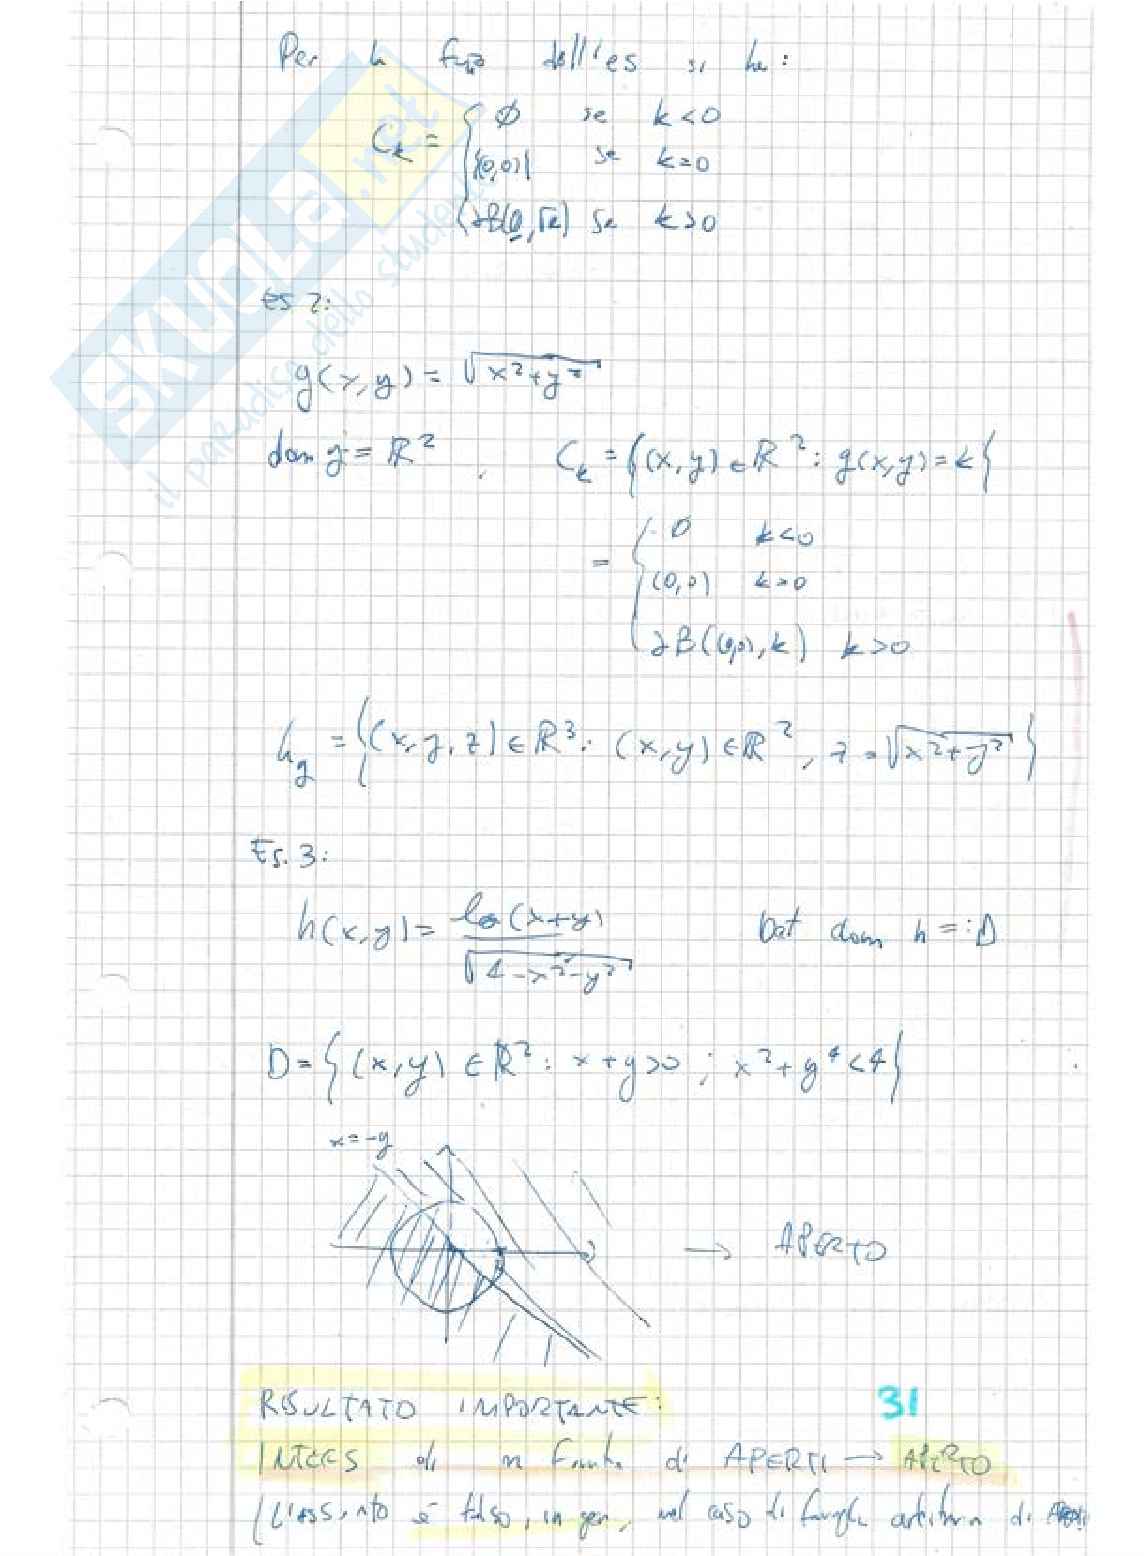 Per la funz dell'es si ha:
C_k = { ∅ se k<0
{(0,0)} se k=0
∂B(0,√k) se k>0
SKUOLA.net
il paradiso dello studente
Es 2:
g(x,y) = √x²+y²
dom g = R² , C_k = {(x,y) ∈ R²: g(x,y) = k}
= { ∅ k<0
(0,0) k=0
∂B((0,0),k) k>0
= {(x,y,z) ∈ R³: (x,y) ∈ R², z = √x²+y²}
Es. 3:
h(x,y) = log(x+y) / √4-x²-y² Det dom h =: D
D = {(x,y) ∈ R²: x+y>0 ; x²+y⁴<4}
x=-y
→ APERTO
RISULTATO IMPORTANTE:
31
INTERS di n finito di APERTI → APERTO
(L'asserto è falso, in gen, nel caso di famiglie arbitrarie di